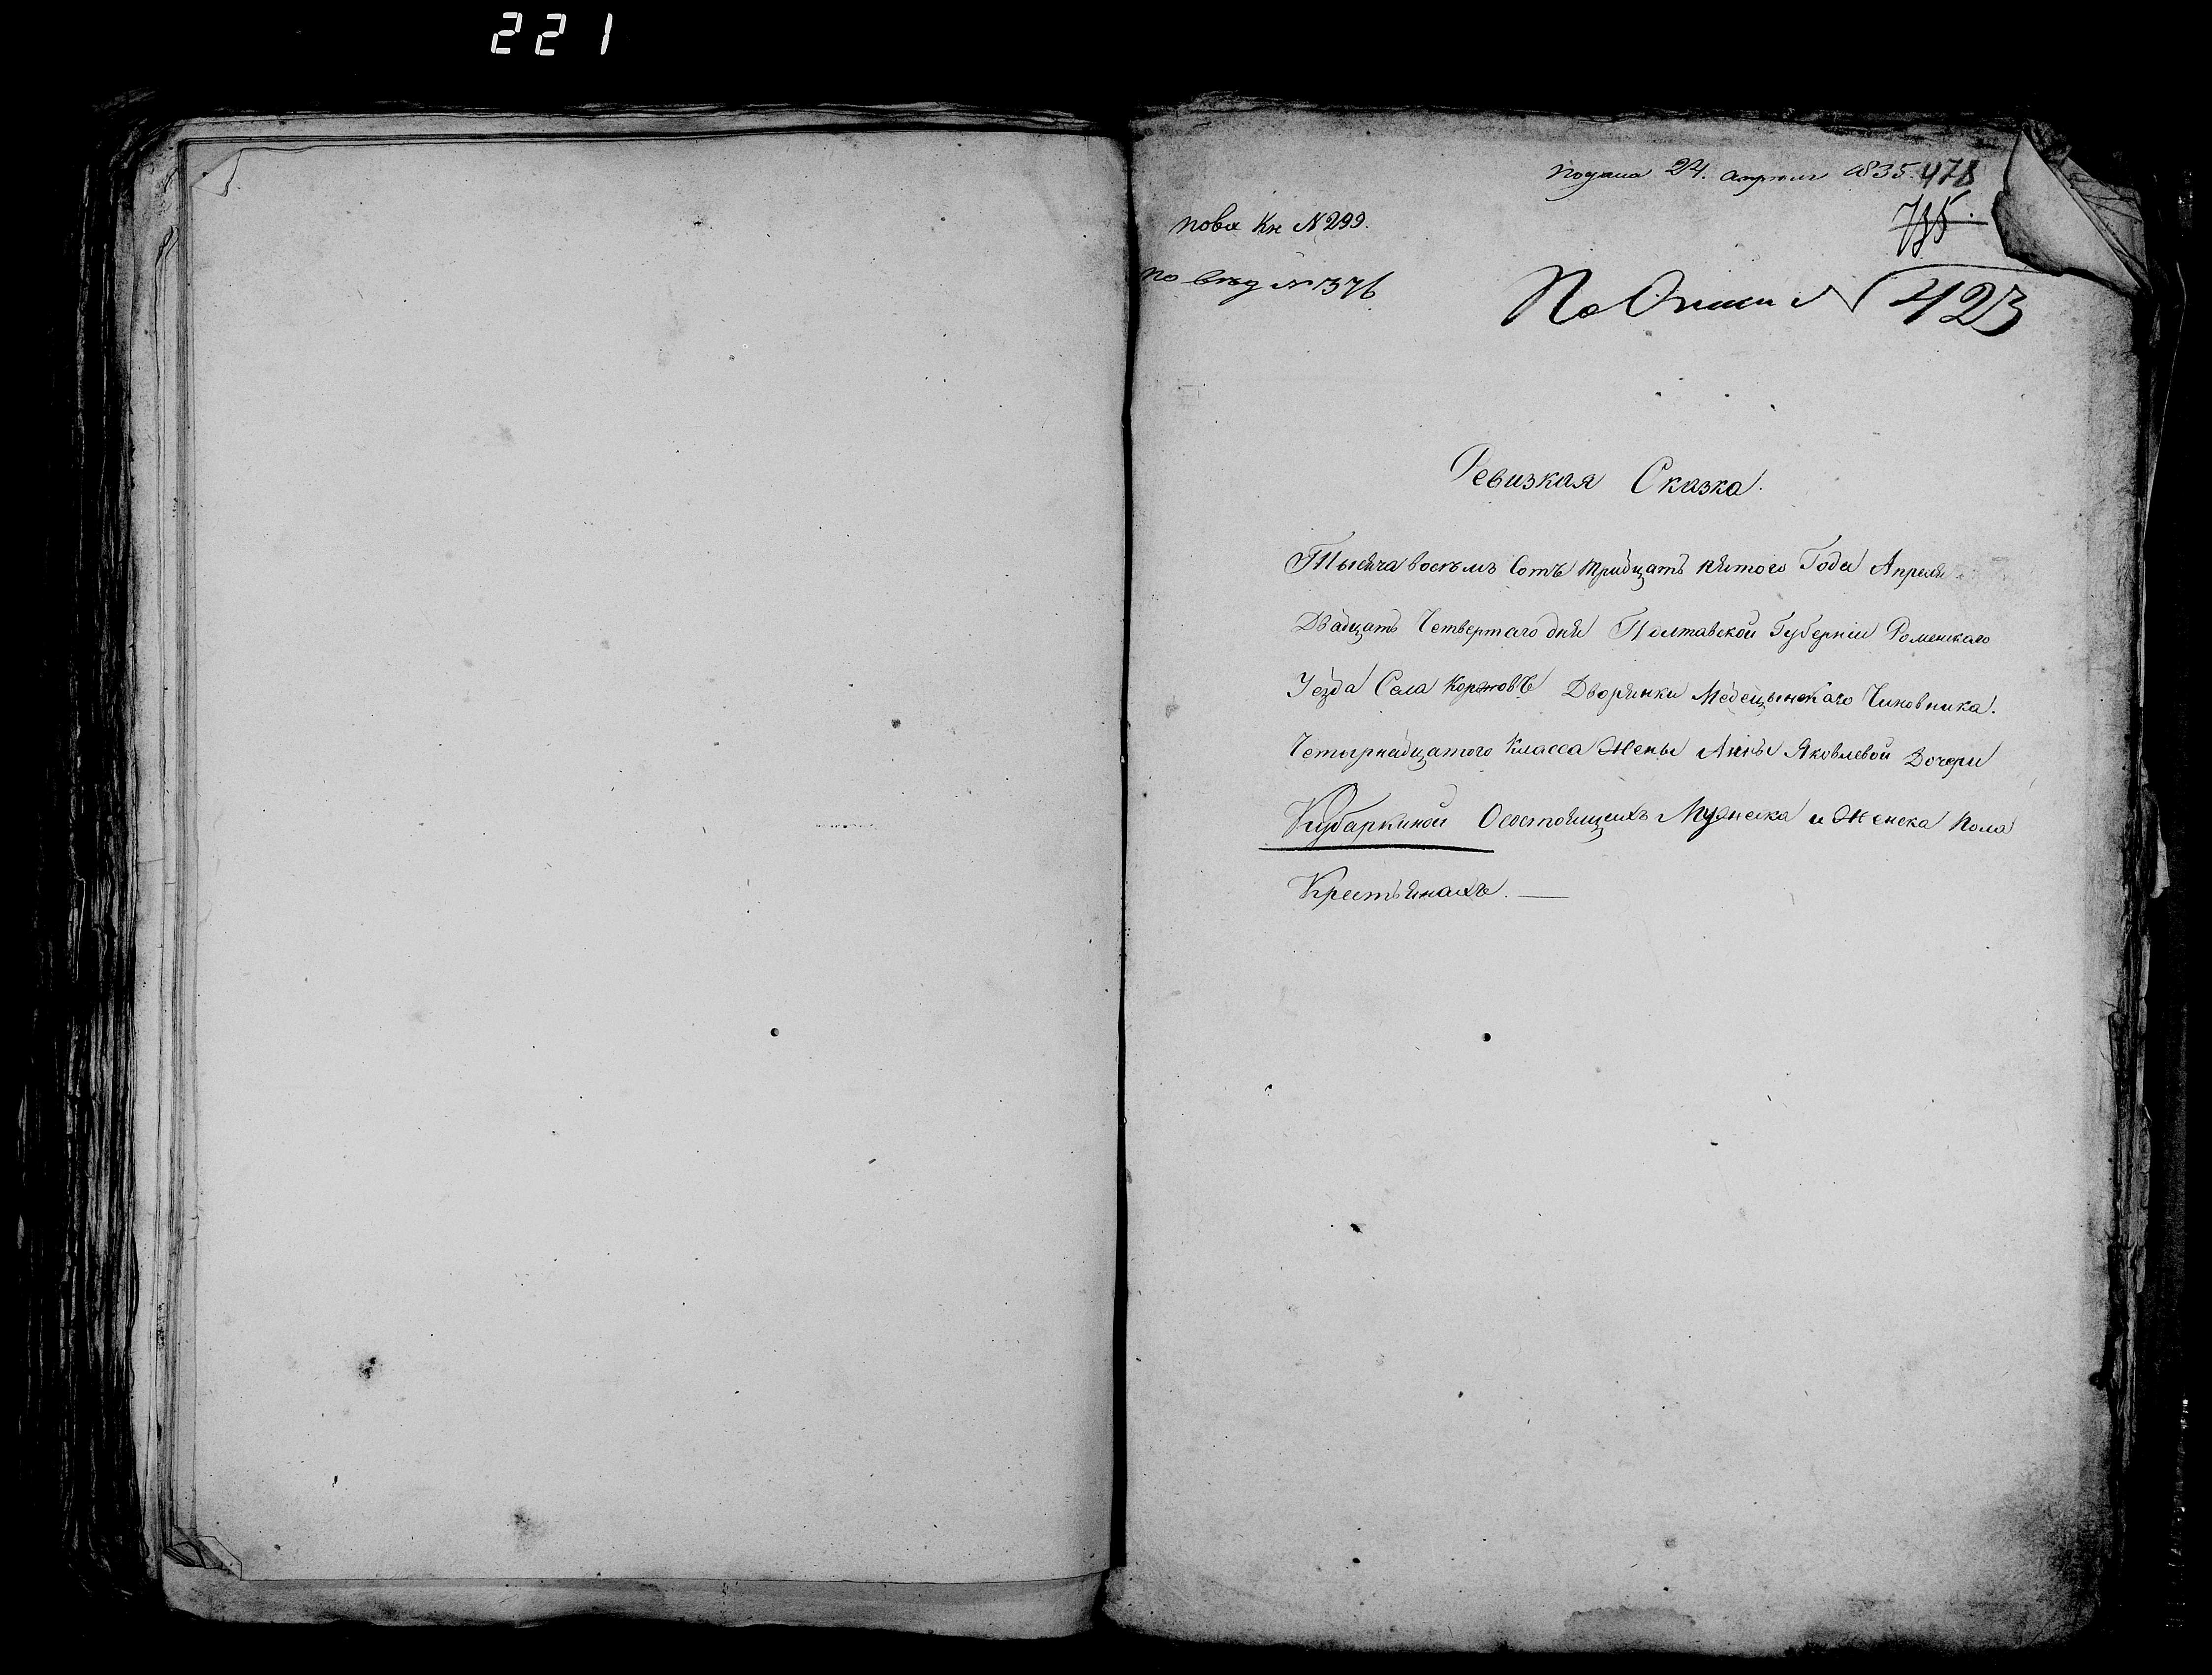 221
подана 24. апреля 1835. 478
735.
нова Кн № 299.
по вед № 1376
По Описи № 423
Ревизкая Сказка.
Тысяча восемъ Сотъ тридцать пятого Года Апреля
Двадцать Четвертаго дня Полтавской Губернiи Роменскаго
Уезда Села Коржовъ Дворянки Медецынскаго Чиновника.
Четырнадцатого Класса Жены Анны Яковлевой Дочери
Кубаркиной О состоящихъ Мужеска и Женска Пола
Крестьянахъ. —